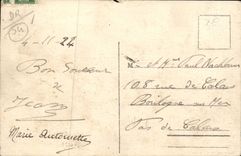 4-11-22
Bon Souvenir
de
Jean
Marie Antoinette
M. et Mme Paul
108 rue de Calais
Boulogne sur Mer
Pas de Calais